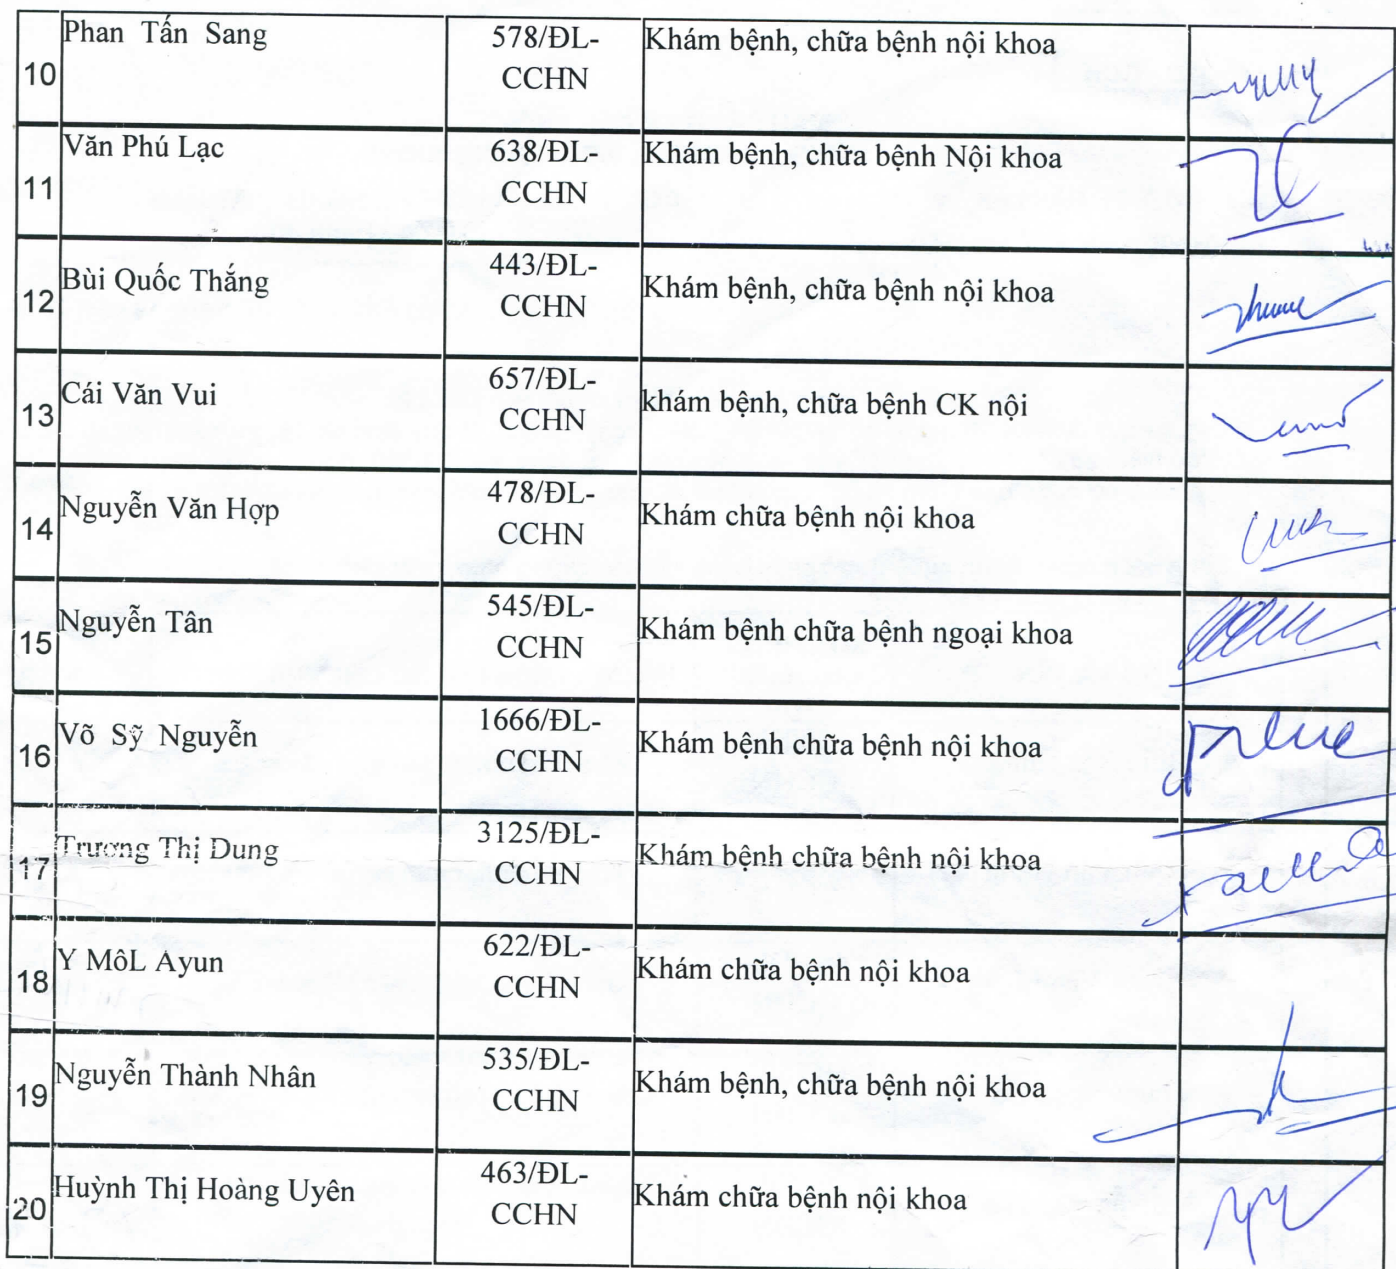 10
Phan Tấn Sang
578/ĐL-
CCHN
Khám bệnh, chữa bệnh nội khoa
11
Văn Phú Lạc
638/ĐL-
CCHN
Khám bệnh, chữa bệnh Nội khoa
12
Bùi Quốc Thắng
443/ĐL-
CCHN
Khám bệnh, chữa bệnh nội khoa
13
Cái Văn Vui
657/ĐL-
CCHN
khám bệnh, chữa bệnh CK nội
14
Nguyễn Văn Hợp
478/ĐL-
CCHN
Khám chữa bệnh nội khoa
15
Nguyễn Tân
545/ĐL-
CCHN
Khám bệnh chữa bệnh ngoại khoa
16
Võ Sỹ Nguyễn
1666/ĐL-
CCHN
Khám bệnh chữa bệnh nội khoa
17
Trương Thị Dung
3125/ĐL-
CCHN
Khám bệnh chữa bệnh nội khoa
18
Y MôL Ayun
622/ĐL-
CCHN
Khám chữa bệnh nội khoa
19
Nguyễn Thành Nhân
535/ĐL-
CCHN
Khám bệnh, chữa bệnh nội khoa
20
Huỳnh Thị Hoàng Uyên
463/ĐL-
CCHN
Khám chữa bệnh nội khoa